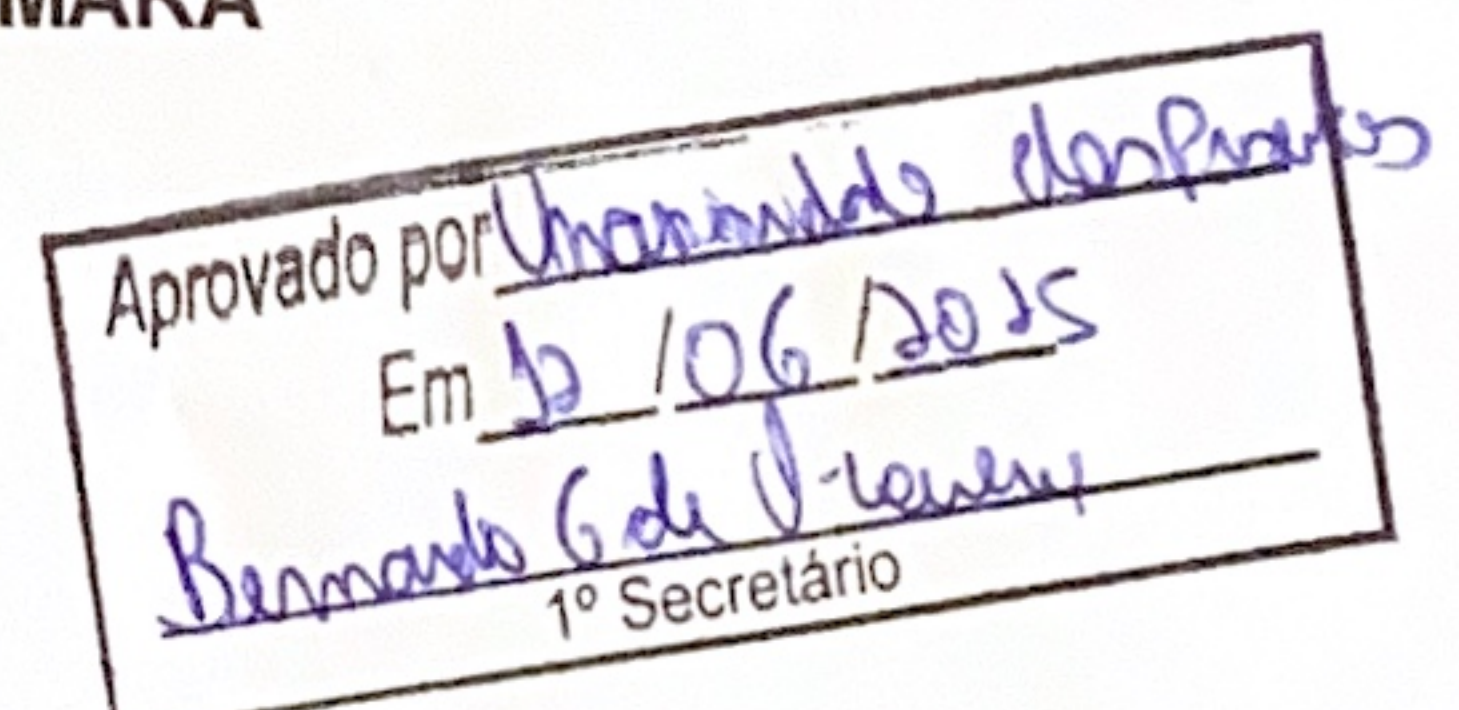 Aprovado por Unanimidade dos Presentes
Em 12/06/2025
Bernardo G de
1º Secretário